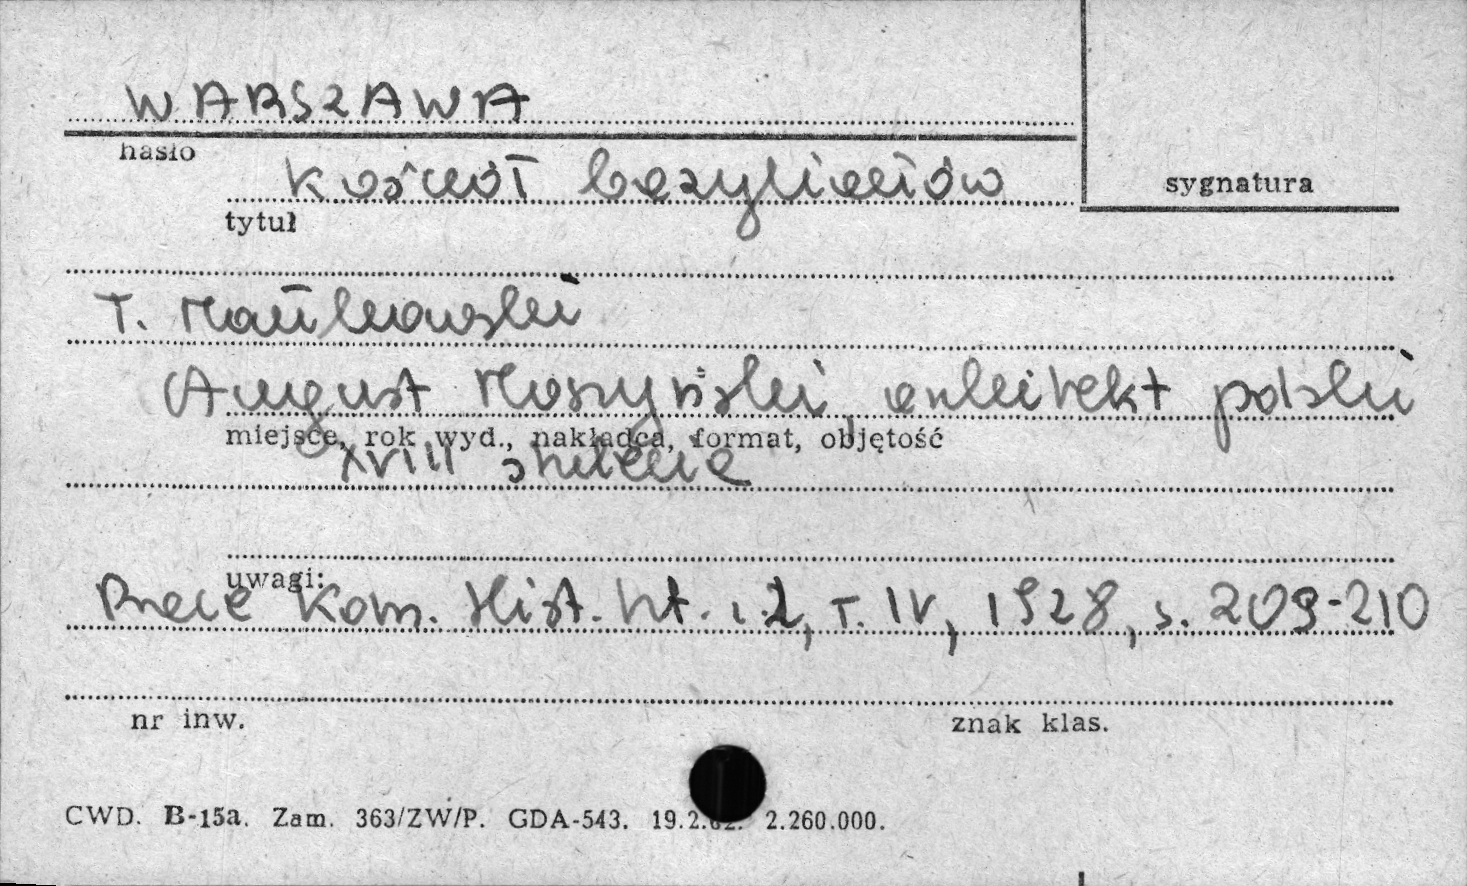 WARSZAWA
hasło
kościół bazylianów
tytuł
sygnatura
T. Mańkowski
August Moszyński architekt polski
miejsce, rok wyd., nakładca, format, objętość
XVIII stulecia
uwagi:
Prace Kom. Hist. Szt. i.2, T. IV, 1928, s. 209-210
nr inw.
znak klas.
CWD. B-15a. Zam. 363/ZW/P. GDA-543. 19.2.62. 2.260.000.